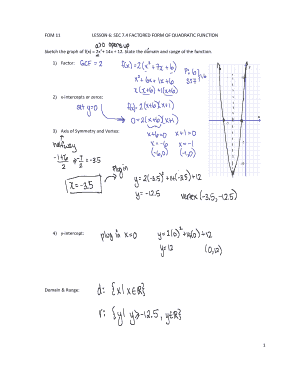 FOM 11 LESSON 6: SEC 7.4 FACTORED FORM OF QUADRATIC FUNCTION
a>0 opens up
Sketch the graph of f(x) = 2x² + 14x + 12. State the domain and range of the function.
1) Factor: GCF = 2 f(x) = 2(x² + 7x + 6) P: 6 S: 7 } 1,6
x² + 6x + 1x + 6
x(x+6) + 1(x+6)
2) x-intercepts or zeros: f(x) = 2(x+6)(x+1)
set y=0
0 = 2(x+6)(x+1)
3) Axis of Symmetry and Vertex: x+6=0 x+1=0
halfway x=-6 x=-1
(-6,0) (-1,0)
-1+-6 / 2 = -7/2 = -3.5
plug in
x = -3.5
y = 2(-3.5)² + 14(-3.5) + 12
y = -12.5 vertex (-3.5, -12.5)
4) y-intercept: plug in x=0 y = 2(0)² + 14(0) + 12
y = 12 (0,12)
Domain & Range: d: {x | x∈ℝ}
r: {y | y ≥ -12.5, y∈ℝ}
1